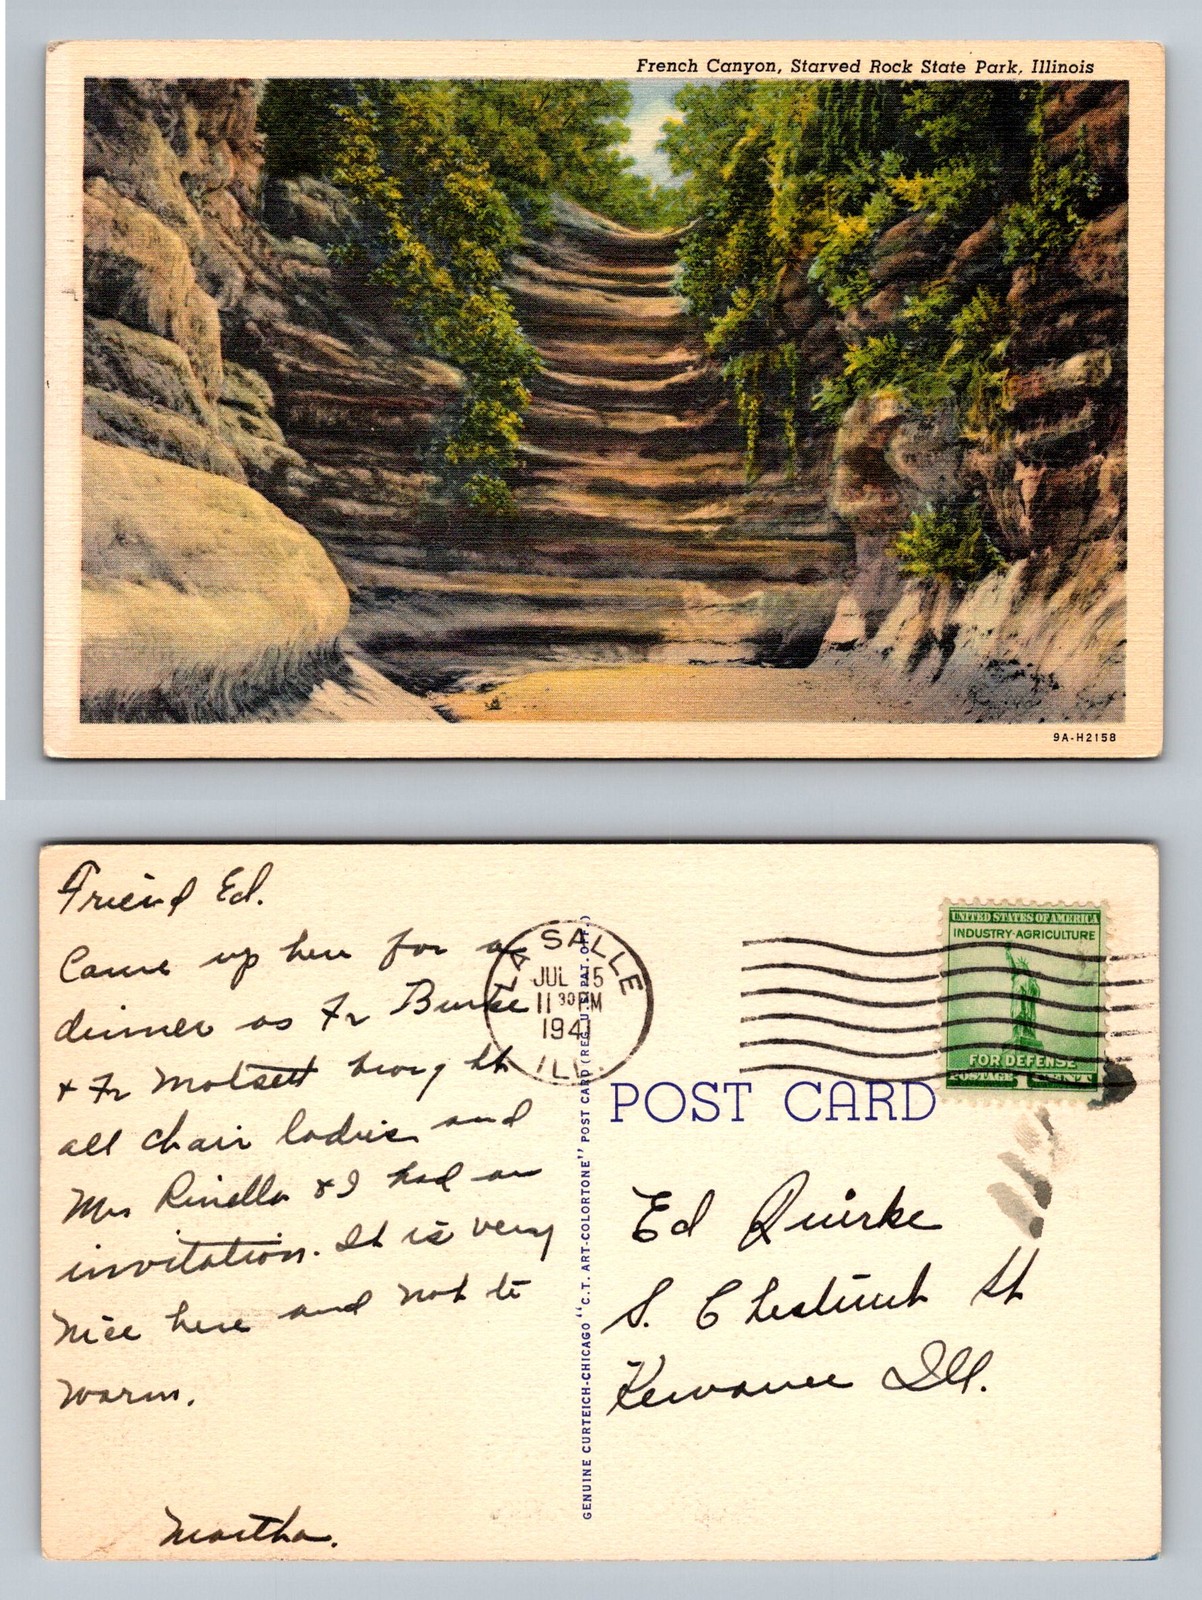 French Canyon, Starved Rock State Park, Illinois
9A-H2158
Friend Ed.
Came up here for a
dinner as Fr Burke
& Fr Motsett brought
all chair ladies and
Mrs Rinella & I had an
invitation. It is very
nice here and not to
warm.
Martha.
LA SALLE
JUL 15
11 30 PM
1941
ILL.
GENUINE CURTEICH-CHICAGO "C.T. ART-COLORTONE" POST CARD (REG. U.S. PAT. OFF.)
UNITED STATES OF AMERICA
INDUSTRY·AGRICULTURE
FOR DEFENSE
POSTAGE 1 CENT
POST CARD
Ed Quirke
S. Chestnut St
Kewanee Ill.